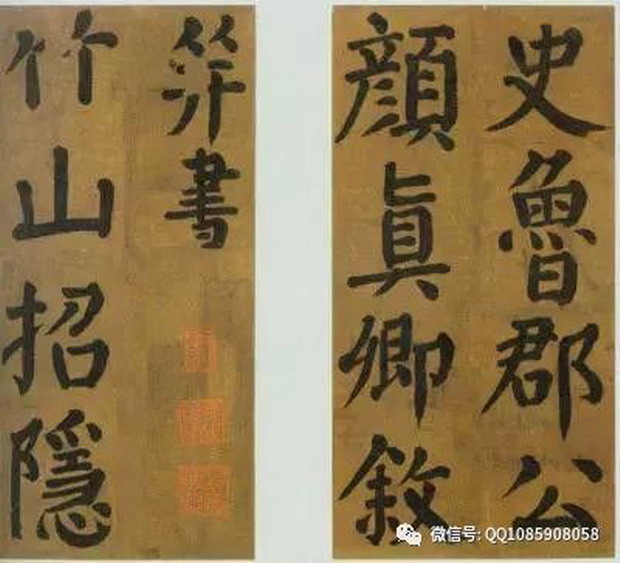 史魯郡公
顏真卿敘
并書
竹山招隱
微信号: QQ1085908058